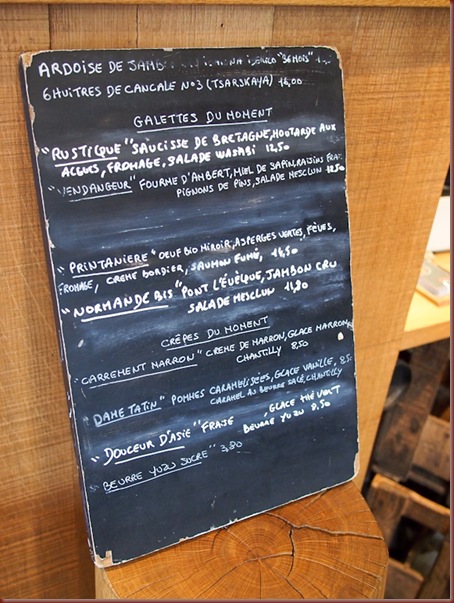 ARDOISE DE "36 MOIS"
6 HUÎTRES DE CANCALE N°3 (TSARSKAYA) 16,00
GALETTES DU MOMENT
"RUSTIQUE" SAUCISSE DE BRETAGNE, MOUTARDE AUX
ALGUES, FROMAGE, SALADE WASABI 12,50
"VENDANGEUR" FOURME D'AMBERT, MIEL DE SAPIN, RAISINS
PIGNONS DE PINS, SALADE MESCLUN 12,50
"PRINTANIERE" OEUF BIO MIROIR, ASPERGES VERTES, FÈVES,
FROMAGE, CREME BORDIER, SAUMON FUMÉ, 14,50
"NORMANDE BIS" PONT L'ÉVÊQUE, JAMBON CRU
SALADE MESCLUN 11,80
CRÊPES DU MOMENT
"CARREMENT MARRON" CREME DE MARRON, GLACE MARRON,
CHANTILLY 8,50
"DAME TATIN" POMMES CARAMELISÉES, GLACE VANILLE, 8,50
CARAMEL AU BEURRE SALÉ, CHANTILLY
"DOUCEUR D'ASIE" GLACE THÉ VERT
BEURRE YUZU 8,50
"BEURRE YUZU SUCRE" 3,80